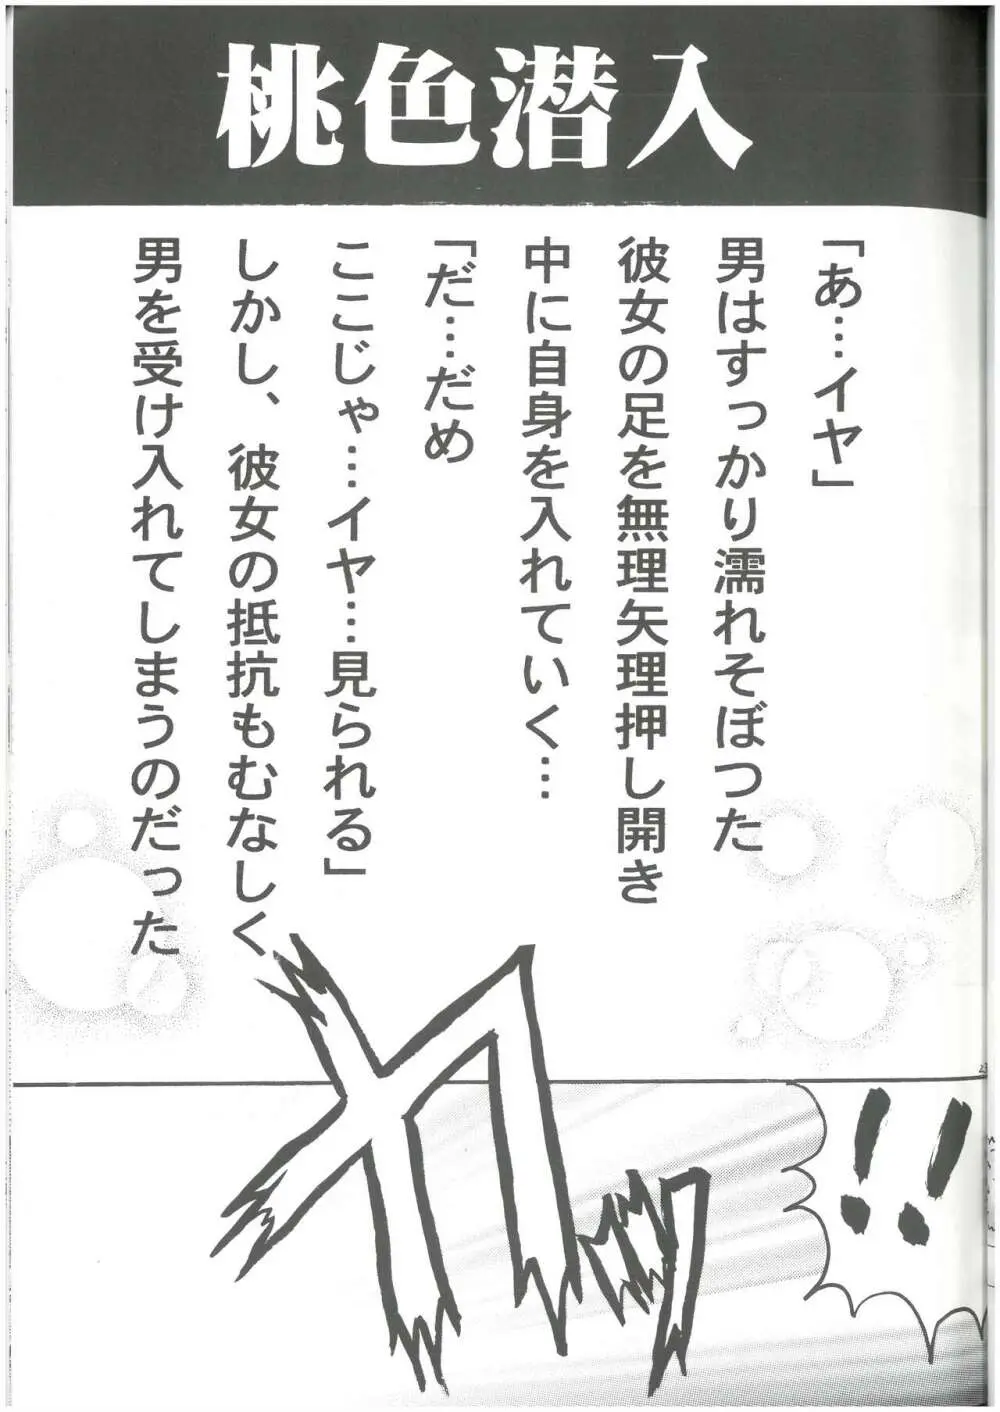 桃色潜入
「あ…イヤ」
男はすっかり濡れそぼつた
彼女の足を無理矢理押し開き
中に自身を入れていく…
「だ…だめ
ここじゃ…イヤ…見られる」
しかし、彼女の抵抗もむなしく
男を受け入れてしまうのだった
!!